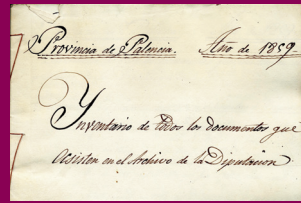 Provincia de Palencia. Año de 1859.
Ynventario de todos los documentos que
existen en el Archivo de la Diputacion